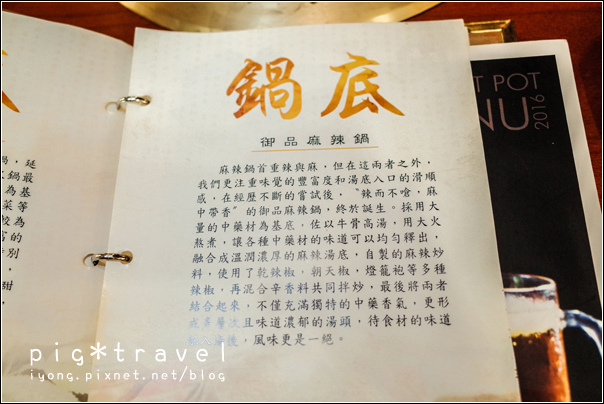 鍋底
御品麻辣鍋
麻辣鍋首重辣與麻，但在這兩者之外，
我們更注重味覺的豐富度和湯底入口的滑順
感，在經歷不斷的嘗試後，〝辣而不嗆，麻
中帶香〞的御品麻辣鍋，終於誕生。採用大
量的中藥材為基底，佐以牛骨高湯，用大火
熬煮，讓各種中藥材的味道可以均勻釋出，
融合成溫潤濃厚的麻辣湯底，自製的麻辣炒
料，使用了乾辣椒，朝天椒，燈籠袍等多種
辣椒，再混合辛香料共同拌炒，最後將兩者
結合起來，不僅充滿獨特的中藥香氣，更形
成多層次且味道濃郁的湯頭，待食材的味道
後，風味更是一絕。
鍋，延
鍋最
為基
菜等
較為
富的
特別
，
甜
，
T POT
NU
2016
pig*travel
iyong.pixnet.net/blog